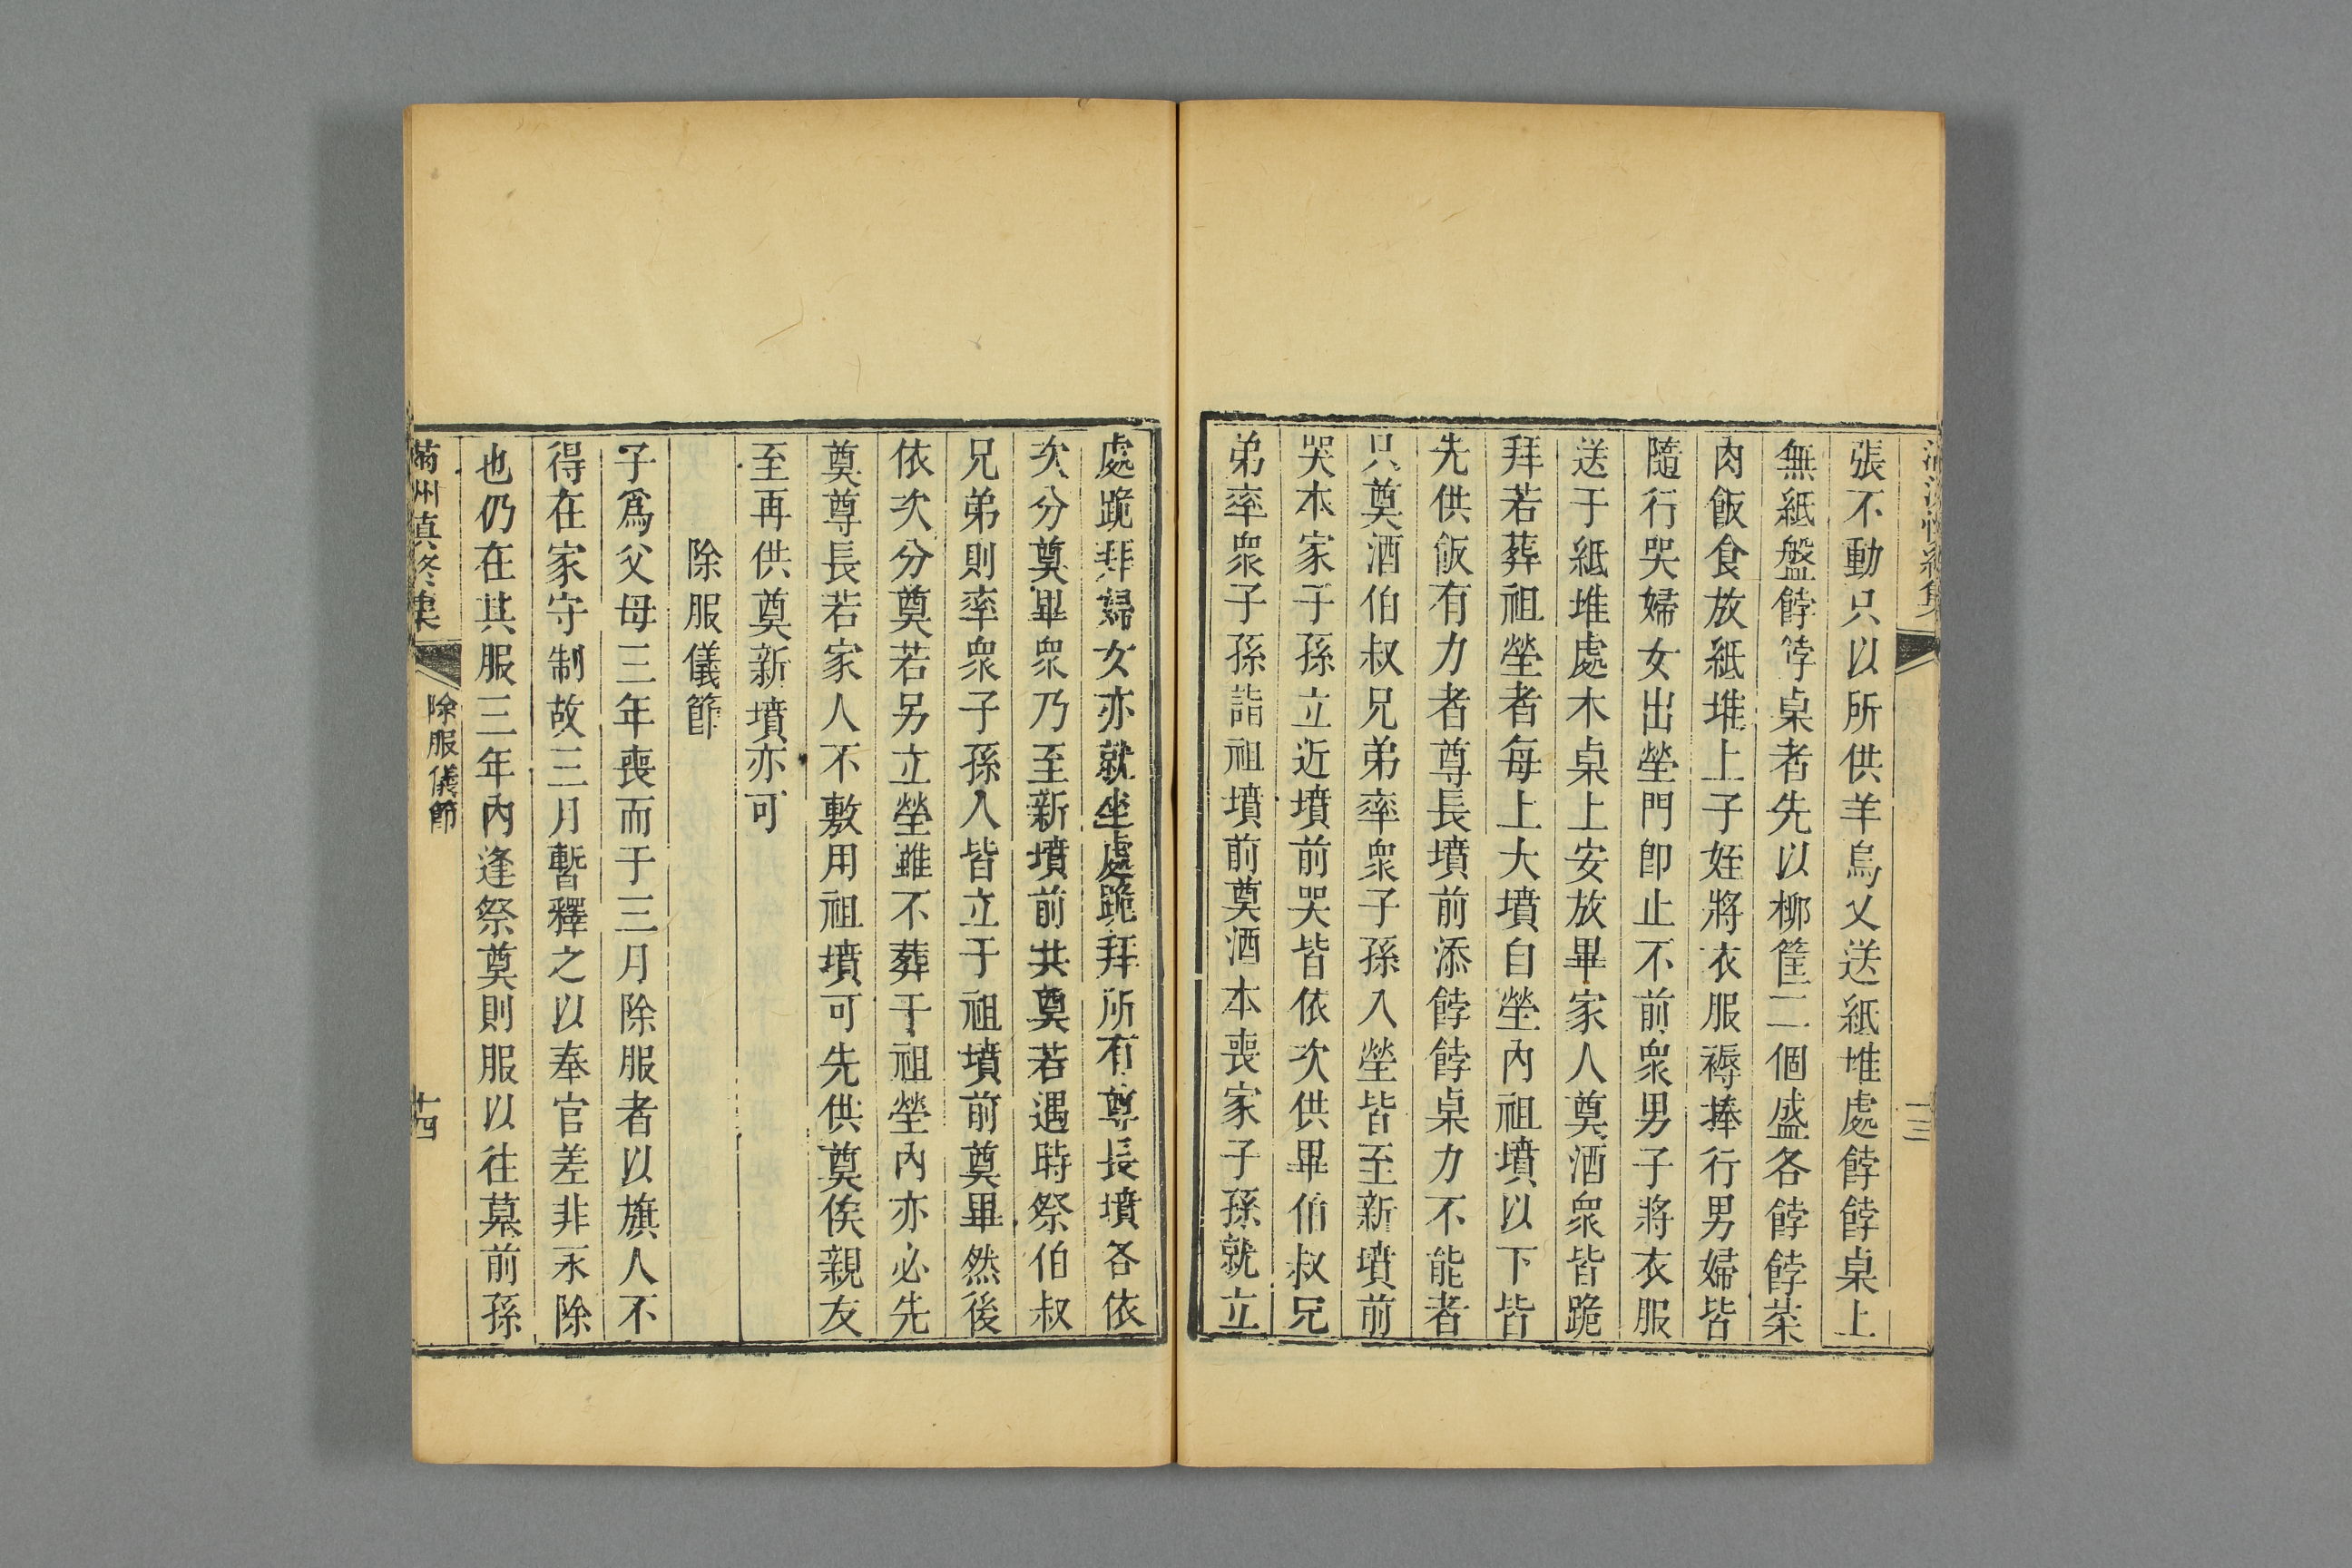 張不動只以所供羊烏乂送紙堆處餑餑桌上
無紙盤餑餑桌者先以柳筐二個盛各餑餑菜
肉飯食放紙堆上子姪將衣服褥捧行男婦皆
隨行哭婦女出塋門卽止不前衆男子將衣服
送于紙堆處木桌上安放畢家人奠酒衆皆跪
拜若葬祖塋者每上大墳自塋內祖墳以下皆
先供飯有力者尊長墳前添餑餑桌力不能者
只奠酒伯叔兄弟率衆子孫入塋皆至新墳前
哭本家子孫立近墳前哭皆依次供畢伯叔兄
弟率衆子孫詣祖墳前奠酒本喪家子孫就立
處跪拜婦女亦就坐處跪拜所有尊長墳各依
次分奠畢衆乃至新墳前共奠若遇時祭伯叔
兄弟則率衆子孫人皆立于祖墳前奠畢然後
依次分奠若另立塋雖不葬于祖塋內亦必先
奠尊長若家人不敷用祖墳可先供奠俟親友
至再供奠新墳亦可
除服儀節
子爲父母三年喪而于三月除服者以旗人不
得在家守制故三月暫釋之以奉官差非永除
也仍在其服三年內逢祭奠則服以往墓前孫
除服儀節
十四